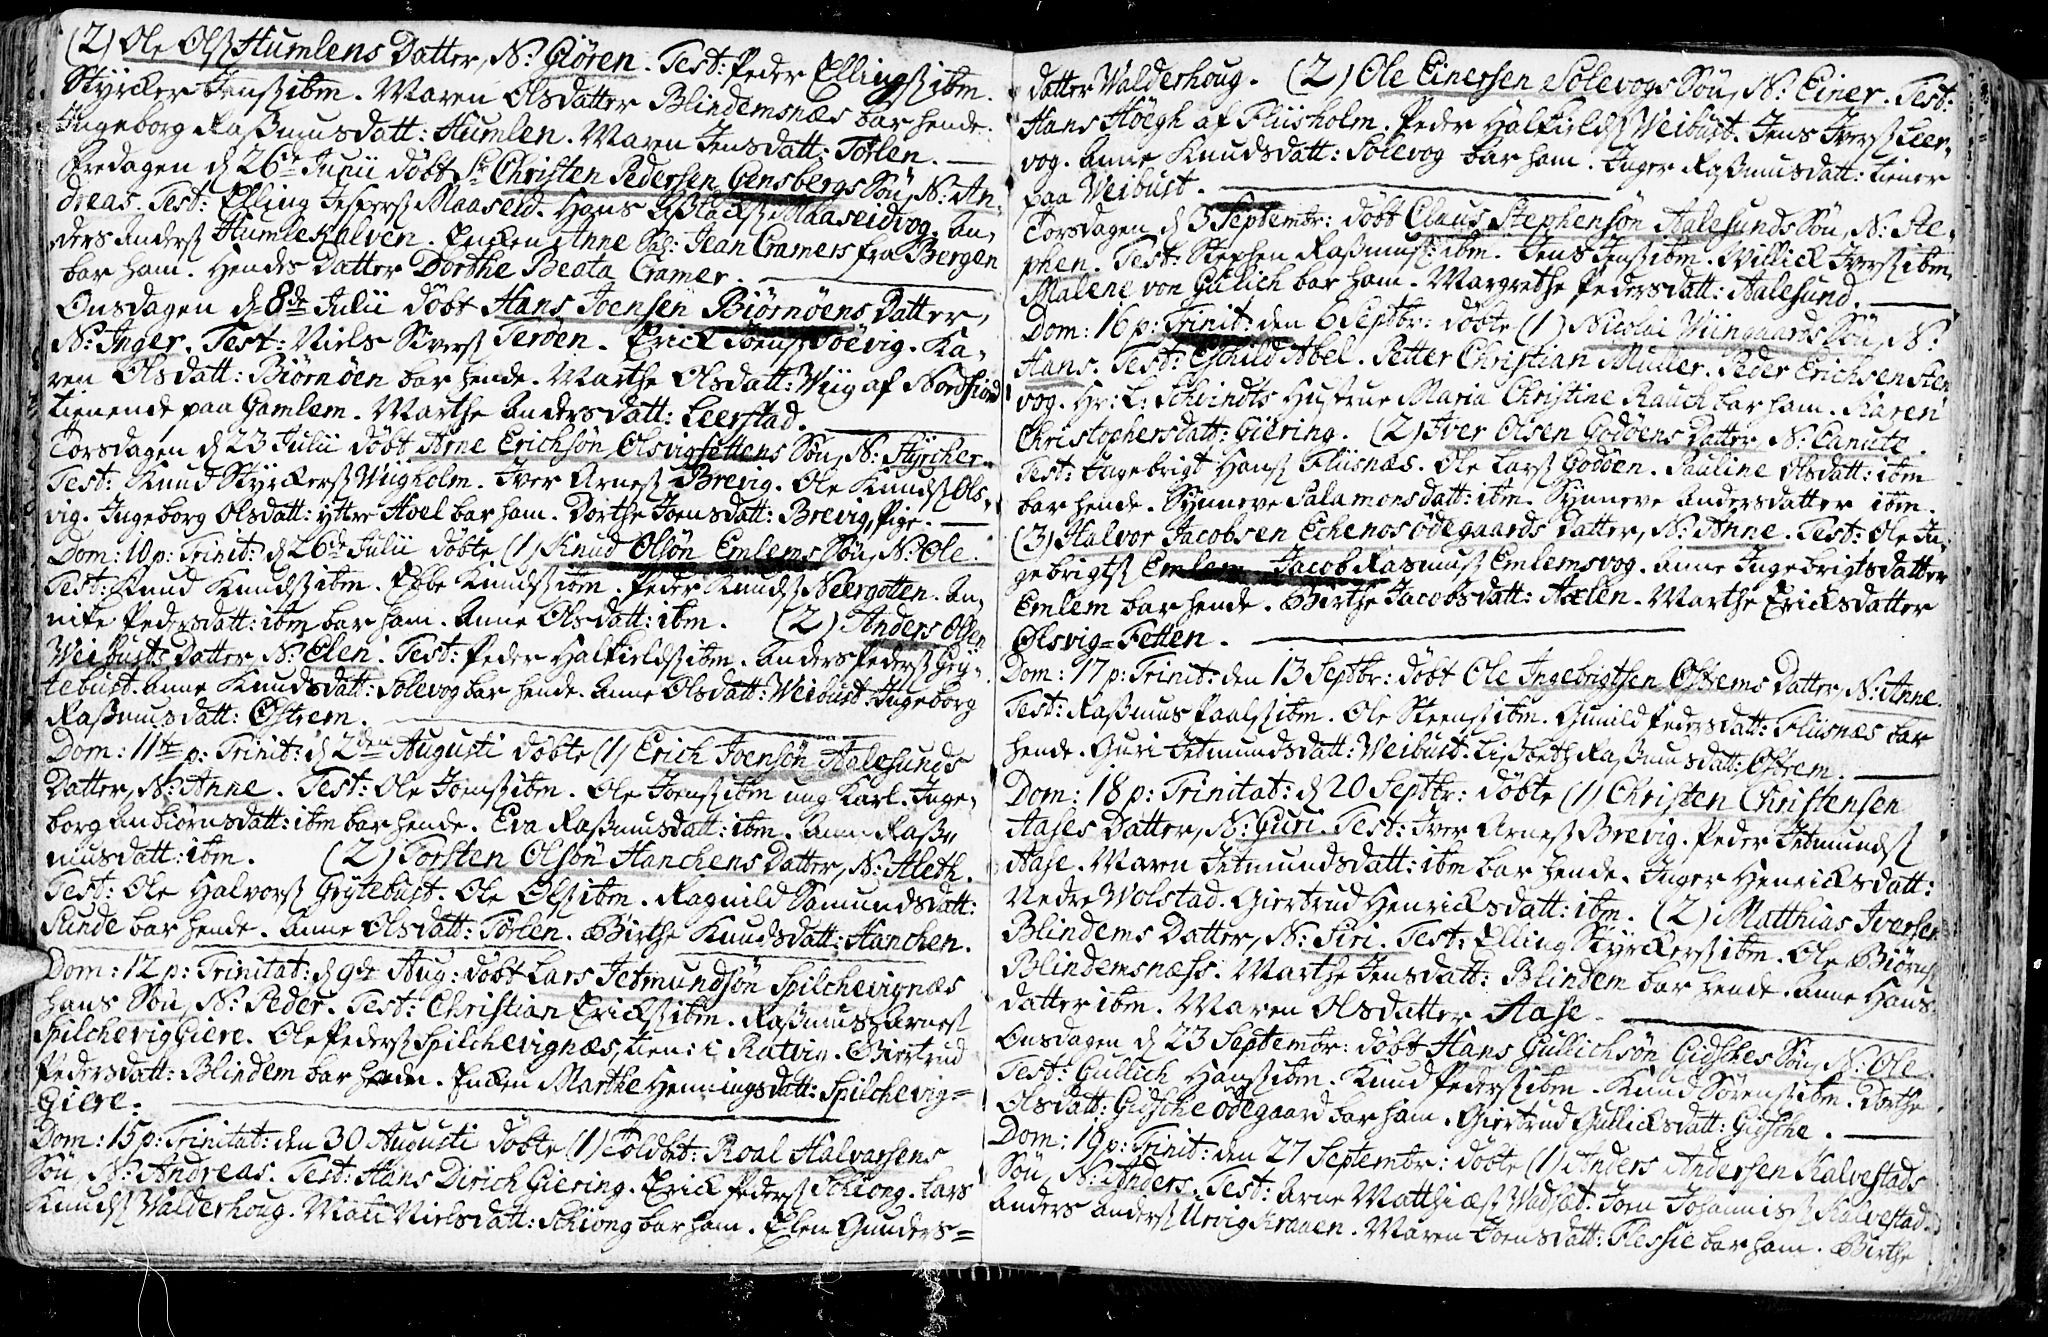 (2) Ole Olsß Humlens Datter, N: Giören. Test: Peder Ellingsß ibm.
Styrcker Jensß ibm. Maren Olsdatter Blindemsnæs bar hende.
Ingeborg Raßmusdatt: Humlen. Maren Jensdatt: Torlen. —
Fredagen d 26de Junii döbt Sr Christen Pedersen Gensbergs Sön, N: An,
dreas. Test: Elling Jesperß Maaseid. Hans Aßlachß Maaseidvog. An,
ders Andersß Humlekalven. Encken Anne Sal: Jean Cramers fra Bergen
bar ham. Hendes Datter Dorthe Beata Cramer. —
Onsdagen d 8de Julii döbt Hans Joensen Biörnöens Datter,
N: Inger. Test: Niels Siversß Teröen. Erick Joensß Söevig. Ka,
ren Olsdatt: Biörnöen bar hende. Marthe Olsdatt: Wiig af Nordfiord
tienende paa Gamlem. Marthe Andersdatt: Leerstad. —
Torsdagen d 23 Julii döbt Arne Erichsön Olsvigfettens Sön, N: Styrcher.
Test: Knud Styrckersß Wiigholm. Iver Arnesß Brevig. Ole Knudsß Ols,
vig. Ingeborg Olsdatt: yttre Hoel bar ham. Dorthe Joensdatt: Brevig, Pige. —
Dom: 10 p: Trinit: d 26de Julii döbte (1) Knud Olsön Emlems Sön, N: Ole.
Test: Knud Knudsß ibm. Ebbe Knudsß ibm. Peder Knudsß Neergotten. An,
nike Pedersdatt: ibm bar ham. Anne Olsdatt: ibm. (2) Anders Olsen
Weibusts Datter, N: Elen. Test: Peder Halkieldsß ibm. Anders Pedersß Gry,
tebust. Anne Knudsdatt: Solevog bar hende. Anne Olsdatt: Weibust. Ingeborg
Raßmusdatt: Östrem. —
Dom: 11te p: Trinit: d 2den Augusti döbte (1) Erich Joensön Aalesunds
Datter, N: Anne. Test: Ole Joensß ibm. Ole Joensß ibm ung Karl. Inge,
borg Anbiörnsdatt: ibm bar hende. Eva Raßmusdatt: ibm. Ane Raß,
musdatt: ibm. (2) Torsten Olsön Hanchens Datter, N: Aleth.
Test: Ole Halvorsß Grytebust. Ole Olsß ibm. Ragnild Samundsdatt:
Sunde bar hende. Anne Olsdatt: Torlen. Birthe Knudsdatt: Hanchen.
Dom: 12 p: Trinitat: d 9de Aug: döbt Lars Jetmundsön Spilchevignæs
hans Sön, N: Peder. Test: Christian Ericksß ibm. Raßmus Arnesß
Spilchevig Giere. Ole Pedersß Spilchevignæs, tien: i Ratvin. Giertrud
Pedersdatt: Blindem bar hende. Encken Marthe Henningsdatt: Spilchevig=
Giere. —
Dom: 15 p: Trinitat: den 30 Augusti döbte (1) Toldbet: Roal Halvarsens
Sön, N: Andreas. Test: Hans Dirich Giering. Erick Pedersß Schiong. Lars
Knudsß Walderhoug. Mali Nielsdatt: Schiong bar ham. Elen Gunders=
datter Walderhoug. (2) Ole Einersen Solevogs Sön, N: Einer. Test:
Hans Höegh af Fliisholm. Peder Halkieldsß Weibust. Jens Iversß Leer,
vog. Anne Knudsdatt: Solevog bar ham. Inger Raßmusdatt: tiener
paa Weibust. —
Torsdagen d 3 Septembr: döbt Claus Stephensön Aalesunds Sön, N: Ste,
phen. Test: Stephen Raßmusß ibm. Jens Jensß ibm. Willick Iversß ibm.
Malene von Gülich bar ham. Margrethe Pedersdatt: Aalesund. —
Dom: 16 p: Trinit: den 6 Septbr: döbte (1) Nicolai Wiingaards Sön, N:
Hans. Test: Eschild Abel. Petter Christian Muller. Peder Erichsen Sten
vog. Hr: L: Schvindts Hustrue Maria Christine Rauch bar ham. Karen
Christophersdatt: Giering. (2) Iver Olsen Godöens Datter, N: Canute.
Test: Ingebrigt Hansß Fliisnæs. Ole Larsß Godöen. Pauline Olsdatt: ibm
bar hende. Synneve Salamonsdatt: ibm. Synneve Andersdatter ibm.
(3) Halvor Jacobsen Echenosödegaards Datter, N: Anne. Test: Ole In,
gebrigtsß Emlem. Jacob Rasmusß Emlemsvog. Anne Ingebrigtsdatter
Emlem bar hende. Birthe Jacobsdatt: Axlen. Marthe Ericksdatter
Olsvig=Fetten. —
Dom: 17 p: Trinit: den 13 Septbr: döbt Ole Ingebrigtsen Östrems Datter, N: Anne.
Test: Raßmus Paalsß ibm. Ole Steensß ibm. Gunild Pedersdatt: Fliisnæs bar
hende. Guri Jetmundsdatt: Weibust. Lisbeth Raßmusdatt: Östrem. —
Dom: 18 p: Trinitat: d 20 Septbr: döbte (1) Christen Christensen
Aases Datter, N: Guri. Test: Iver Arnesß Brevig. Peder Jetmundsß
Aase. Maren Jetmundsdatt: ibm bar hende. Inger Henricksdatt:
Nedre Wolstad. Giertrud Henricksdatt: ibm. (2) Matthias Iversen
Blindems Datter, N: Siri. Test: Elling Styrckersß ibm. Ole Biörnsß
Blindemsnæss. Marthe Jensdatt: Blindem bar hende. Anne Hans,
datter ibm. Maren Olsdatter Aase. —
Onsdagen d 23 Septembr: döbt Hans Gullichsön Gidsches Sön, N: Ole.
Test: Gullich Hansß ibm. Knud Pedersß ibm. Knud Sörensß ibm. Dorthe
Olsdatt: Gidsche ödegaard bar ham. Giertrud Gullicksdatt: Gidsche. —
Dom: 19 p: Trinit: den 27 Septembr: döbte (1) Anders Andersen Kalvestads
Sön, N: Anders. Test: Arne Matthiæsß Wadset. Joen Johannisß Kalvestad.
Anders Andersß Urvig Kraaen. Maren Joensdatt: Flessie bar ham. Birthe